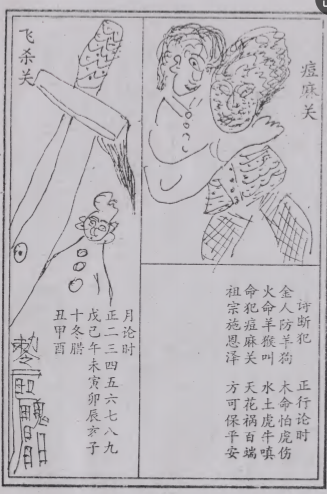 痘麻关
诗断犯 正行论时
金人防羊狗 木命怕虎伤
火命羊猴叫 水土虎牛嗔
命犯痘麻关 天花祸百端
祖宗施恩泽 方可保平安
飞杀关
月论时
正二三四五六七八九
戊己午未寅卯辰亥子
十冬腊
丑甲酉